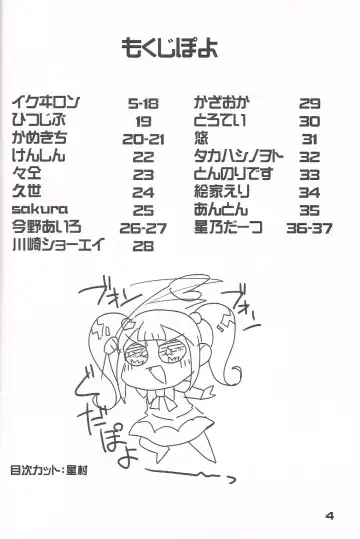 もくじぽよ
イケヰロン 5-18
ひつじぶ 19
かめきち 20-21
けんしん 22
々全 23
久世 24
sakura 25
今野あいろ 26-27
川崎ショーエイ 28
かざおか 29
とろてい 30
悠 31
タカハシノヲト 32
とんのりです 33
絵家えり 34
あんとん 35
星乃だーつ 36-37
ブォン
ブォン
ぐぐだぽよ
目次カット：星村
4